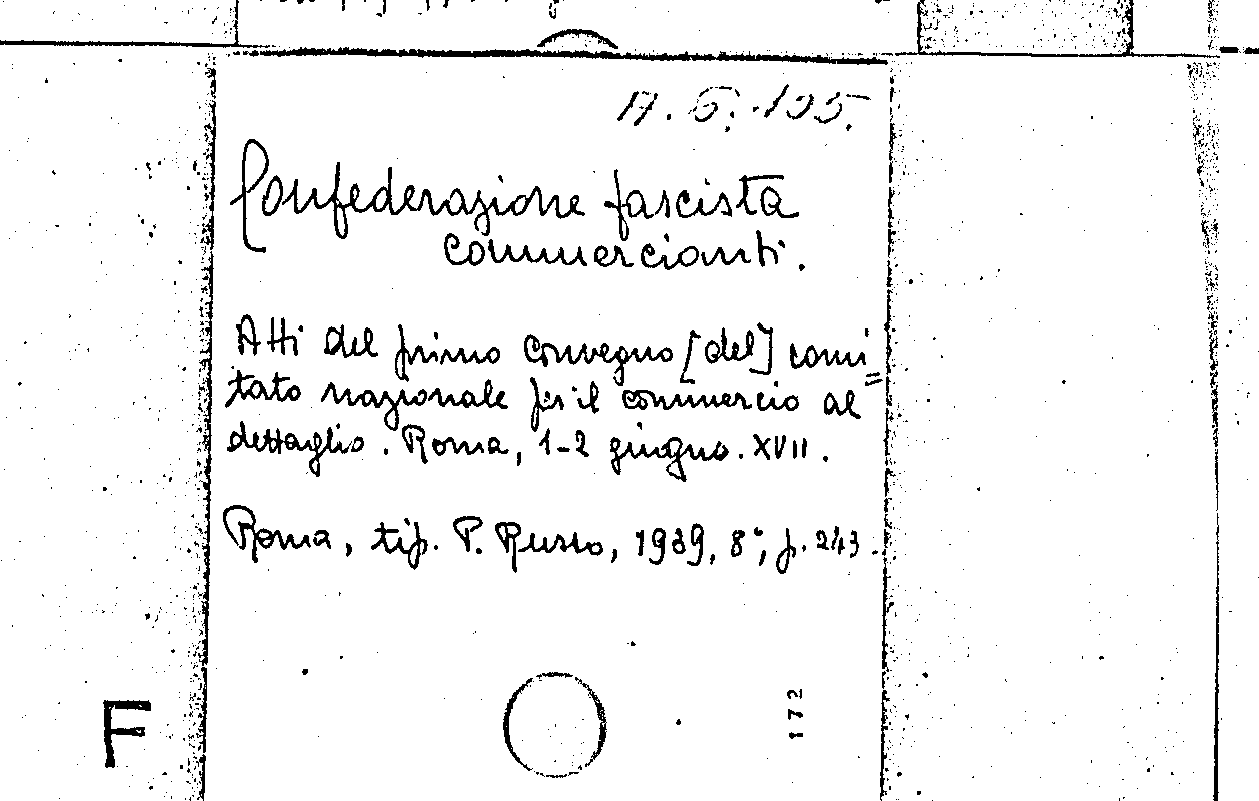 A. 6. 195.
Confederazione fascista
commercianti.
Atti del primo convegno [del] comi=
tato nazionale per il commercio al
dettaglio. Roma, 1-2 giugno. XVII.
Roma, tip. P. Russo, 1939, 8°, p. 243.
172
F